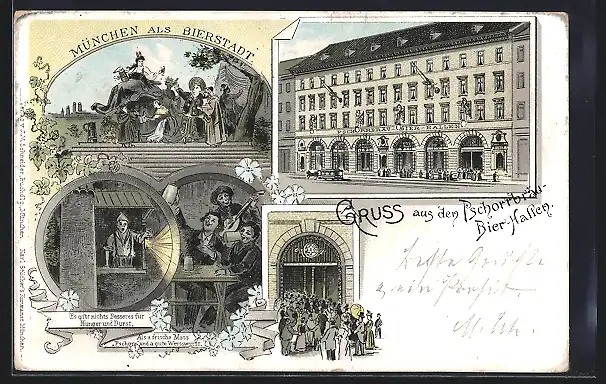 MÜNCHEN ALS BIERSTADT
PSCHORRBRÄU-BIER-HALLEN
GRUSS aus den Pschorrbräu-
Bier-Hallen.
Es gibt nichts Besseres für
Hunger und Durst,
Als a frische Mass
Pschorr und a gute Weisswurst.
Beste Grüße
Prosit.